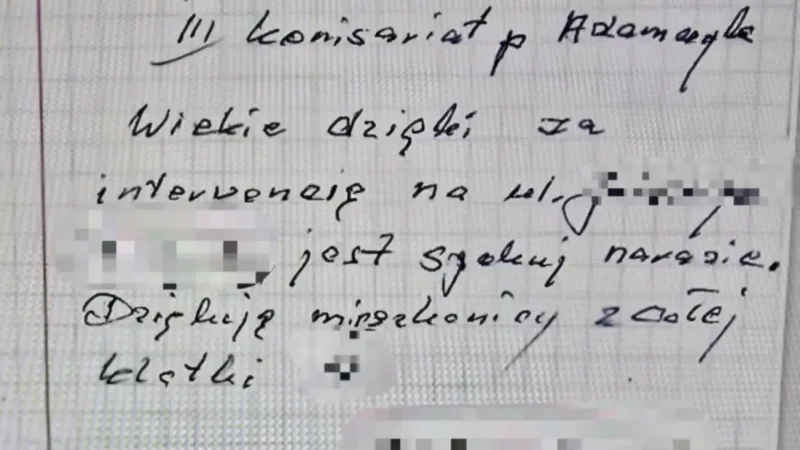 III komisariat p Adamczyk
Wiekie dzięki za
interwencię na ul.
jest spokuj narazie.
Dziękują mieszkańcy z całej
klatki